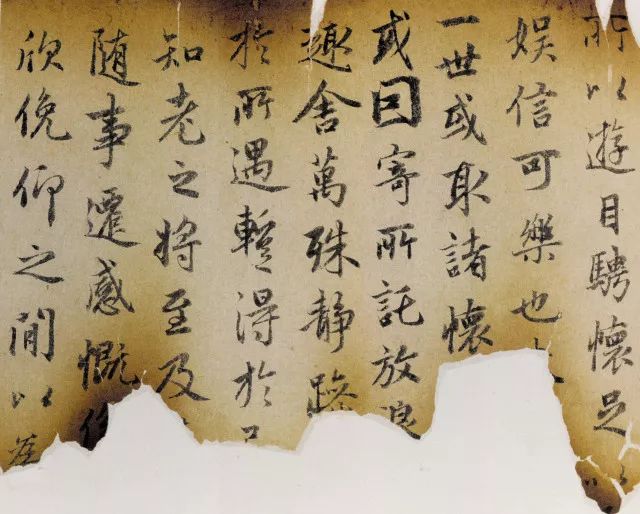 所以遊目騁懷足
娛信可樂也
一世或取諸懷
或因寄所託放浪
趣舍萬殊靜躁
於所遇暫得於
知老之將至及
隨事遷感慨係
欣俛仰之閒以為